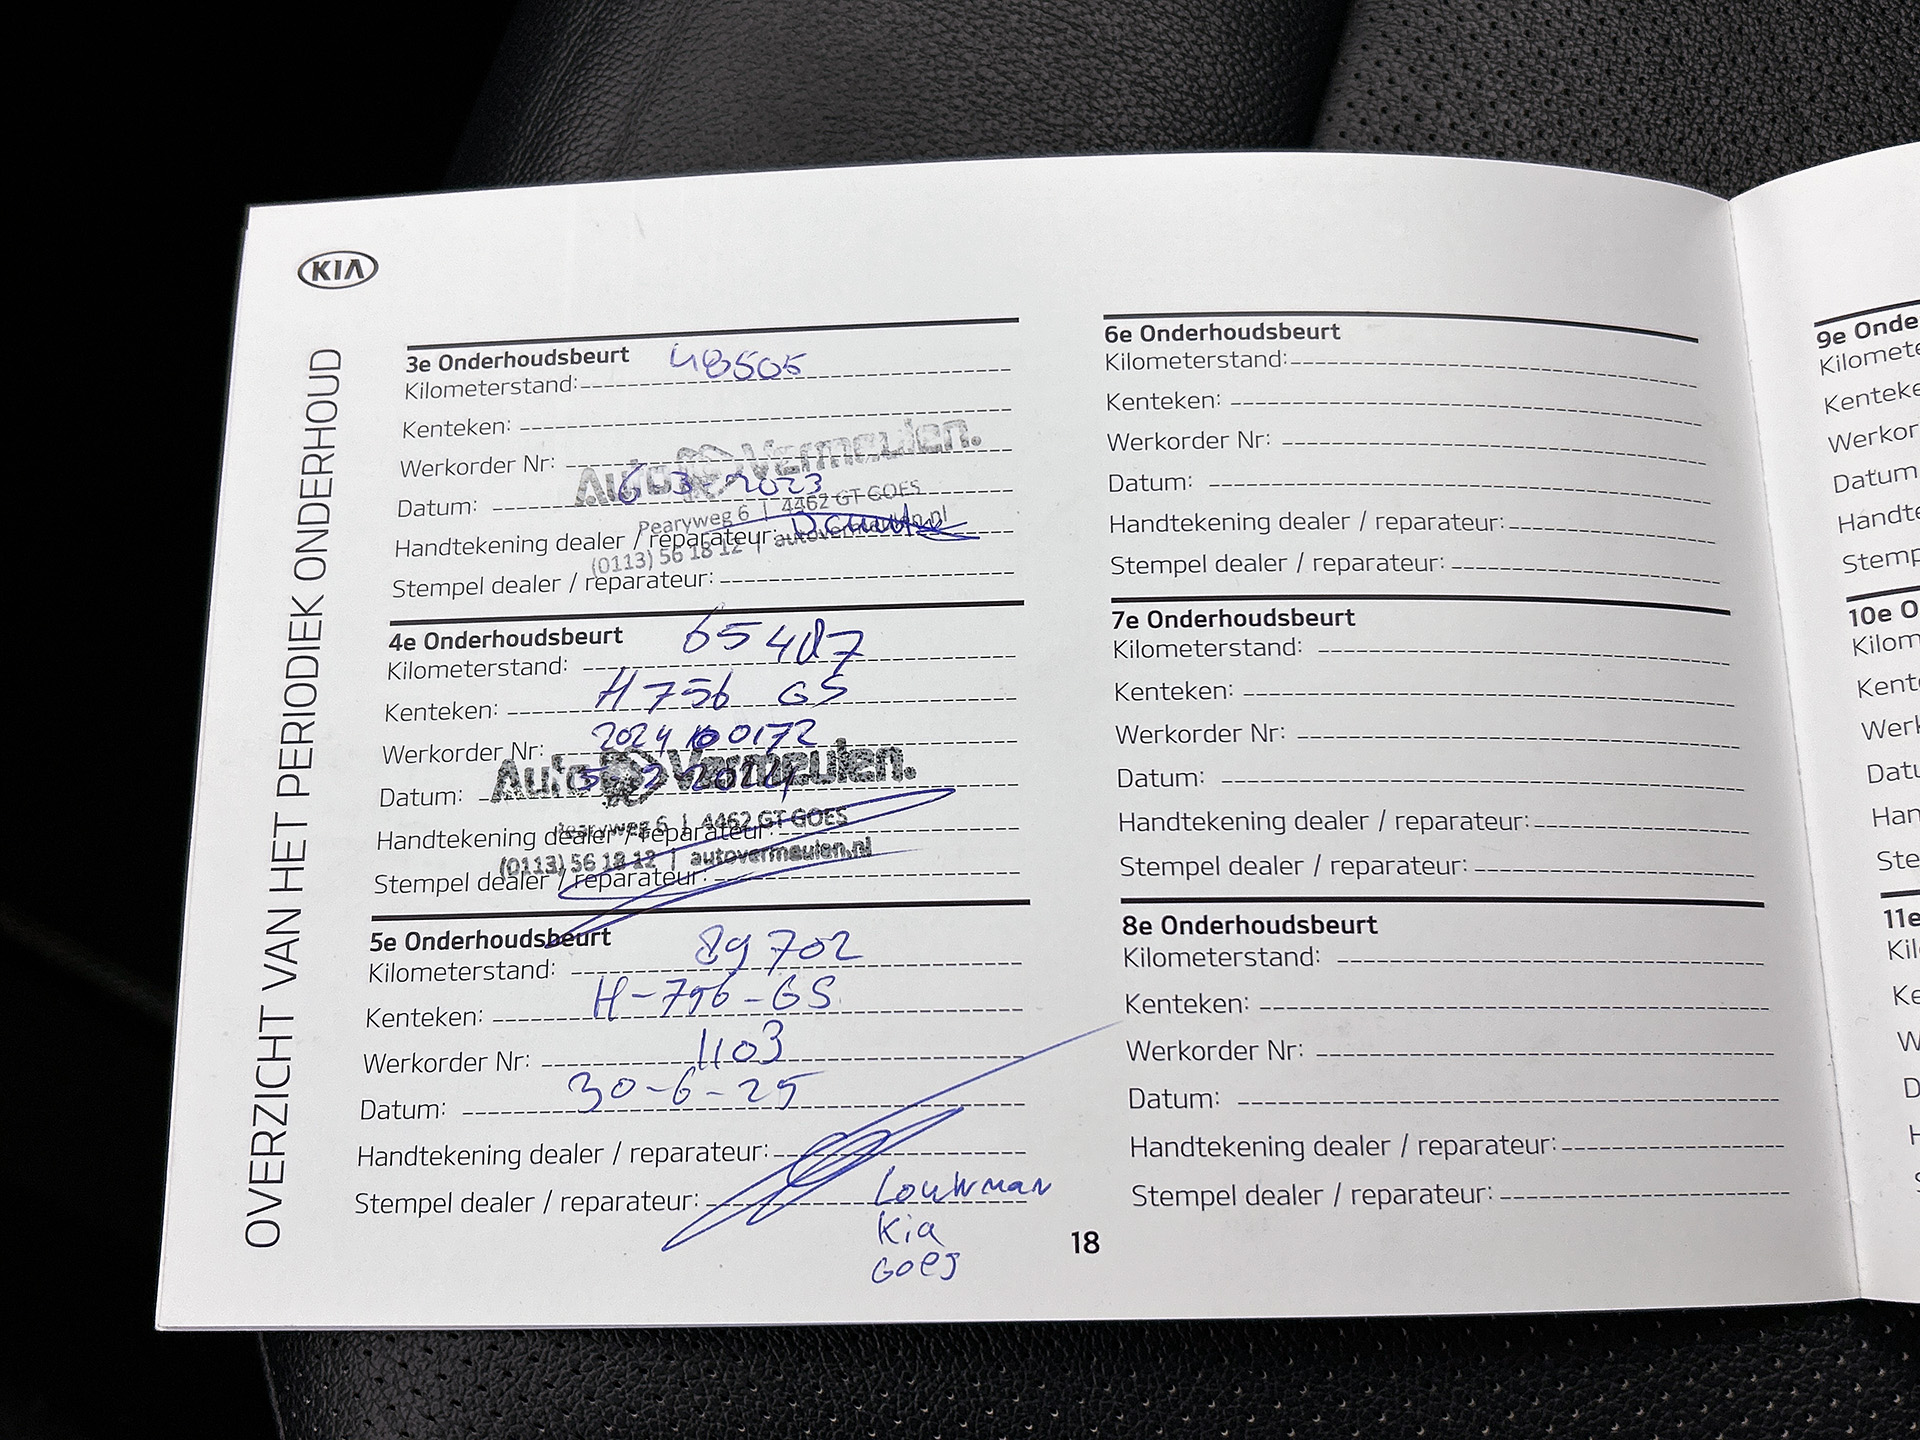 KIA
OVERZICHT VAN HET PERIODIEK ONDERHOUD
3e Onderhoudsbeurt
Kilometerstand: 48505
Kenteken:
Werkorder Nr:
Auto Vermeulen.
Datum: 6-3-2023
Pearyweg 6 | 4462 GT GOES
Handtekening dealer / reparateur:
(0113) 56 18 12 | autovermeulen.nl
Stempel dealer / reparateur:
4e Onderhoudsbeurt
Kilometerstand: 65487
Kenteken: H 756 GS
Werkorder Nr: 2024100172
Auto Vermeulen.
Datum: 5-2-2024
Pearyweg 6 | 4462 GT GOES
Handtekening dealer / reparateur:
(0113) 56 18 12 | autovermeulen.nl
Stempel dealer / reparateur:
5e Onderhoudsbeurt
Kilometerstand: 89702
Kenteken: H-756-GS
Werkorder Nr: 1103
Datum: 30-6-25
Handtekening dealer / reparateur:
Stempel dealer / reparateur: Louwman
Kia
Goes
6e Onderhoudsbeurt
Kilometerstand:
Kenteken:
Werkorder Nr:
Datum:
Handtekening dealer / reparateur:
Stempel dealer / reparateur:
7e Onderhoudsbeurt
Kilometerstand:
Kenteken:
Werkorder Nr:
Datum:
Handtekening dealer / reparateur:
Stempel dealer / reparateur:
8e Onderhoudsbeurt
Kilometerstand:
Kenteken:
Werkorder Nr:
Datum:
Handtekening dealer / reparateur:
Stempel dealer / reparateur:
18
9e Onde
Kilomete
Kenteke
Werkor
Datum
Handte
Stemp
10e O
Kilom
Kent
Werk
Datu
Han
Ste
11e
Kil
Ke
W
D
H
S